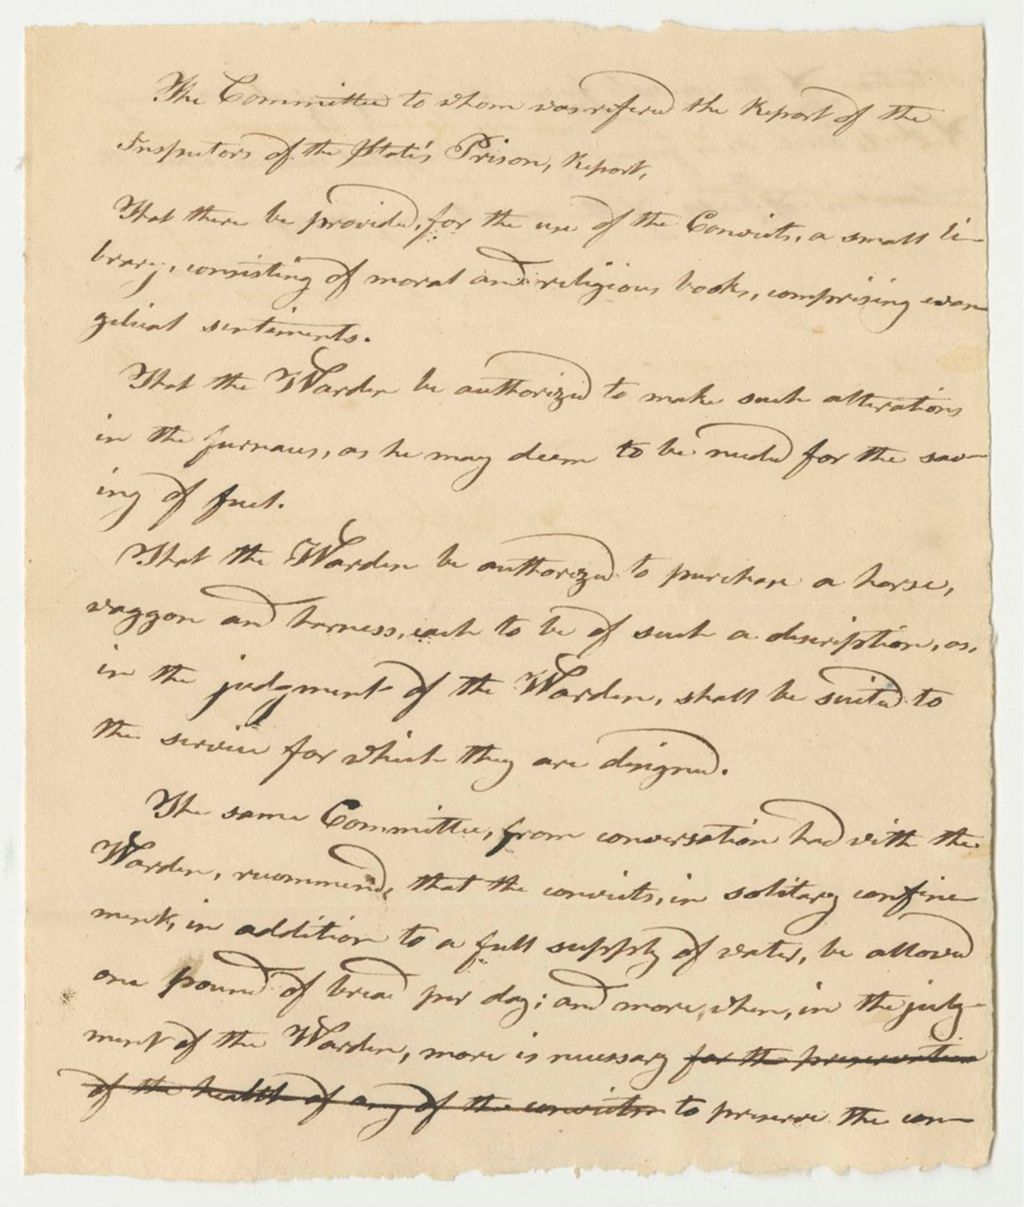 The Committee to whom was refered the Report of the
Inspectors of the State's Prison, Report,
That there be provided, for the use of the Convicts, a small li-
brary, consisting of moral and religious books, comprising evan-
gelical sentiments.
That the Warden be authorized to make such alterations
in the furnaces, as he may deem to be needed for the sav-
ing of fuel.
That the Warden be authorized to purchase a horse,
waggon and harness, each to be of such a description, as,
in the judgment of the Warden, shall be suited to
the service for which they are designed.
The same Committee, from conversation had with the
Warden, recommend, that the convicts, in solitary confine-
ment, in addition to a full supply of water, be allowed
one pound of bread per day; and more, when, in the judg-
ment of the Warden, more is necessary for the preservation
of the health of any of the convicts to preserve the con-